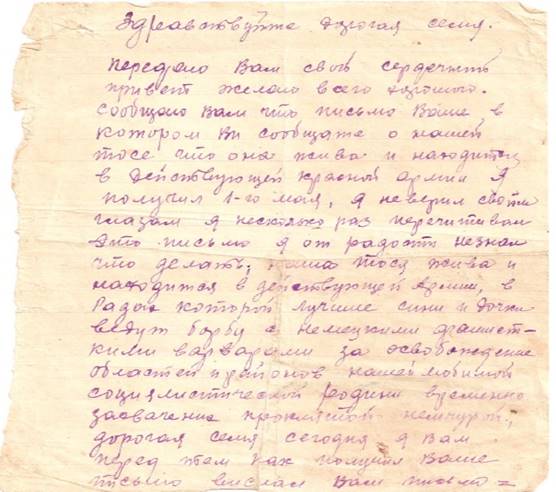 Здравствуйте дорогая семия.
передаю Вам свой сердечный
привет желаю всего хорошого.
сообщаю Вам что письмо Ваше, в
котором Ви сообщате о нашей
тосе, что она жива и находится
в действующей красной армии я
получил 1-го мая, я неверил своїм
глазам я несколько раз перечитивал
это письмо я от радости незнал
что делать, наша тося жива и
находится в действующей Армии, в
Рядах которой лучшие сини и дочки
ведут борбу с немецкими фашист-
кими варварами за освобождение
областей и районов нашей любимой
социалистической родини временно
захвачение проклятой немчурой,
дорогая семия сегодня я Вам
перед тем как получил Ваше
письмо вислал Вам письмо =